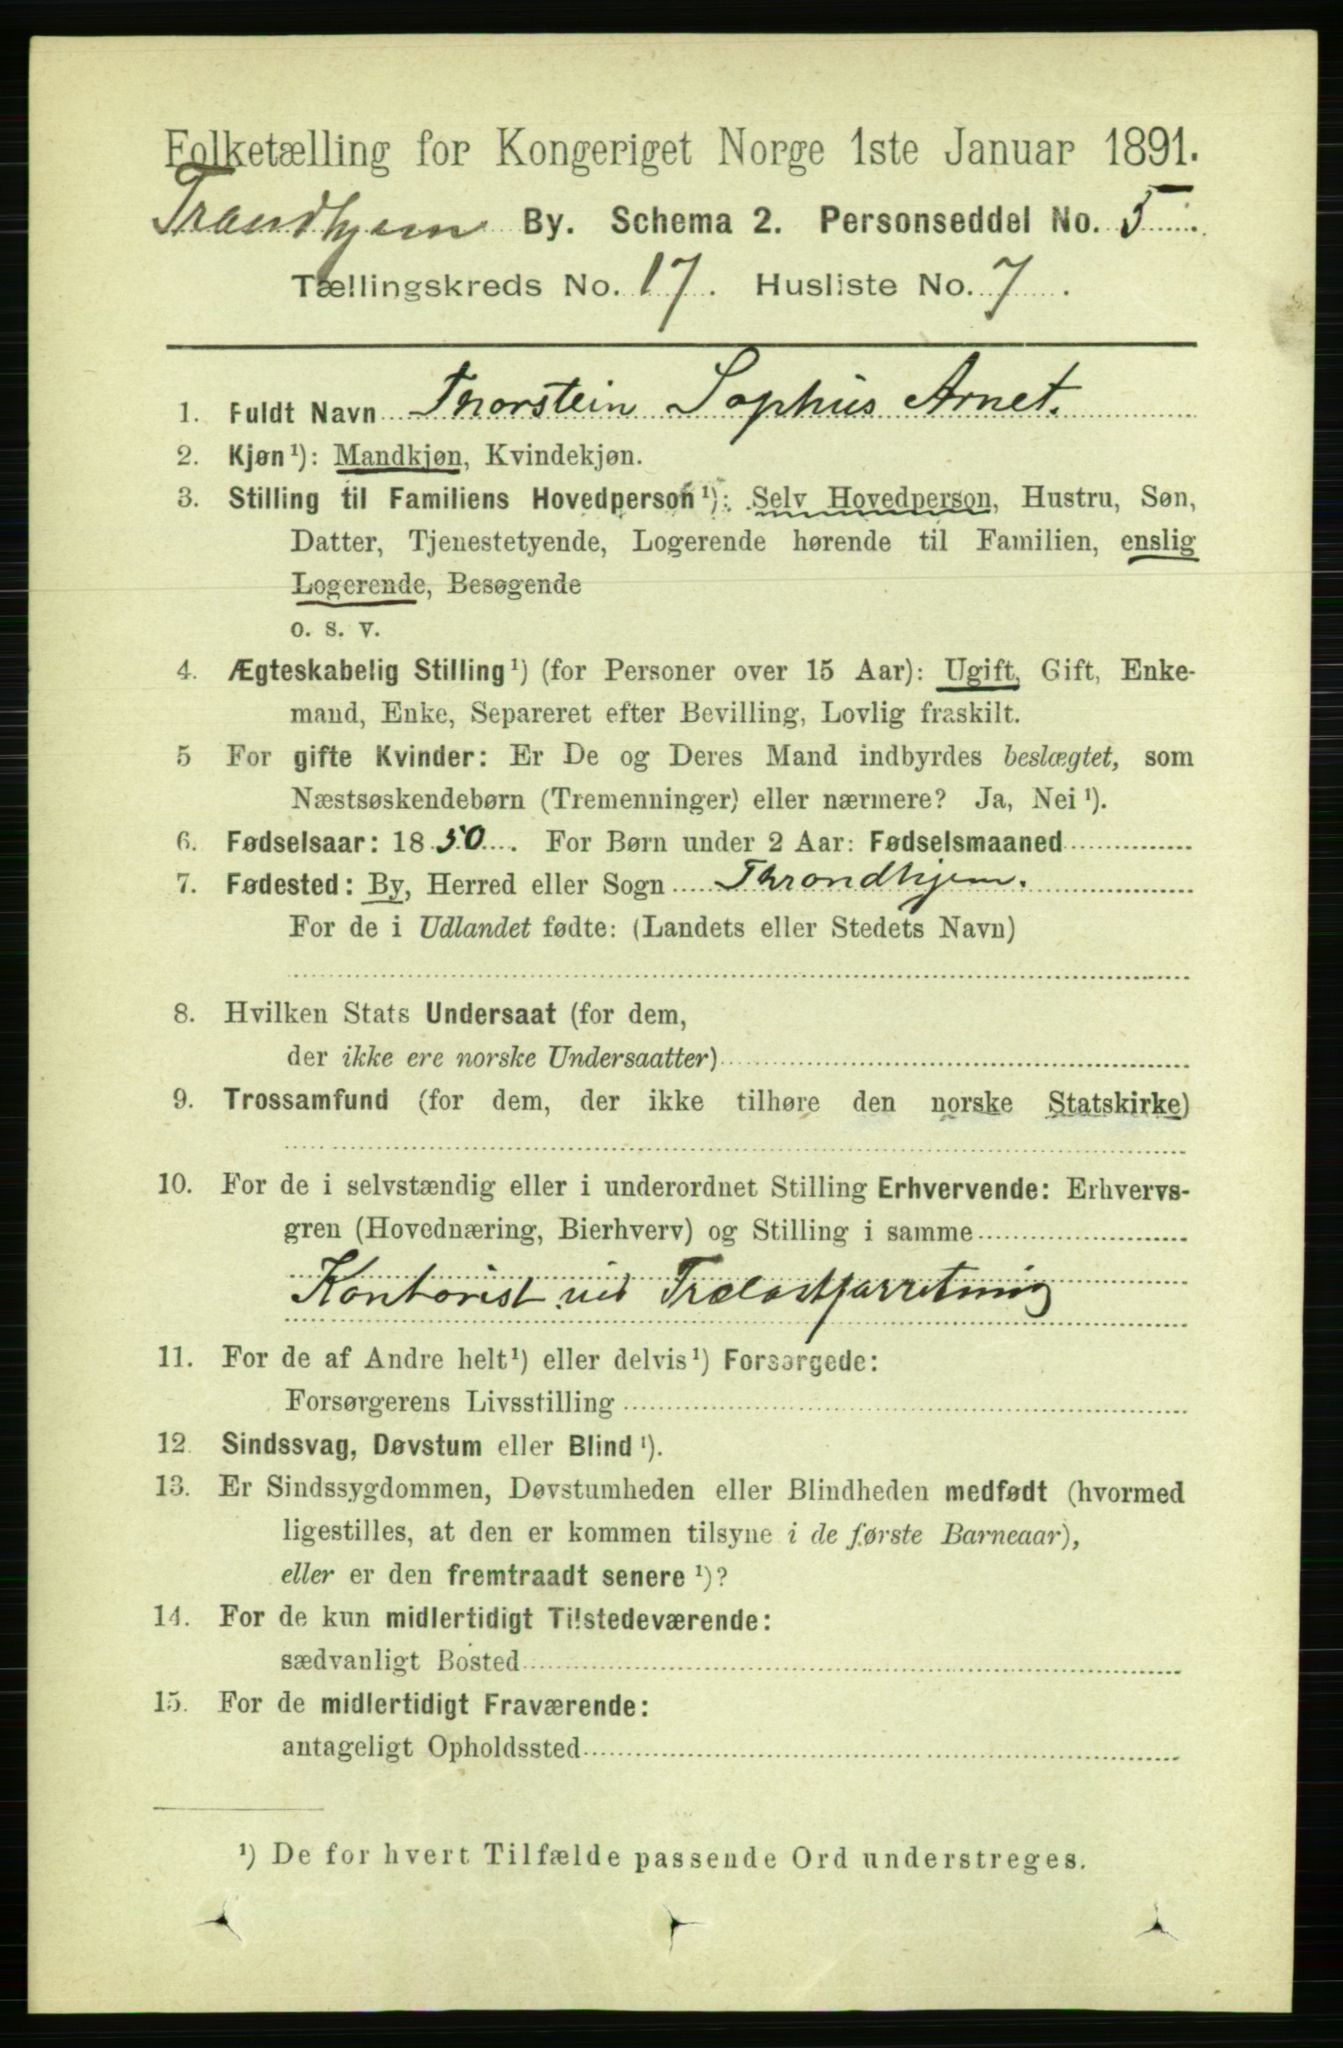 Folketælling for Kongeriget Norge 1ste Januar 1891.
Trondhjem By. Schema 2. Personseddel No. 5.
Tællingskreds No. 17. Husliste No. 7.
1. Fuldt Navn Thorstein Sophus Arnet.
2. Kjøn¹): Mandkjøn, Kvindekjøn.
3. Stilling til Familiens Hovedperson¹): Selv Hovedperson, Hustru, Søn,
Datter, Tjenestetyende, Logerende hørende til Familien, enslig
Logerende, Besøgende
o. s. v.
4. Ægteskabelig Stilling¹) (for Personer over 15 Aar): Ugift, Gift, Enke-
mand, Enke, Separeret efter Bevilling, Lovlig fraskilt.
5 For gifte Kvinder: Er De og Deres Mand indbyrdes beslægtet, som
Næstsøskendebørn (Tremenninger) eller nærmere? Ja, Nei¹).
6. Fødselsaar: 1850. For Børn under 2 Aar: Fødselsmaaned
7. Fødested: By, Herred eller Sogn Throndhjem.
For de i Udlandet fødte: (Landets eller Stedets Navn)
8. Hvilken Stats Undersaat (for dem,
der ikke ere norske Undersaatter)
9. Trossamfund (for dem, der ikke tilhøre den norske Statskirke)
10. For de i selvstændig eller i underordnet Stilling Erhvervende: Erhvervs-
gren (Hovednæring, Bierhverv) og Stilling i samme
Kontorist ved Trælastforretning
11. For de af Andre helt¹) eller delvis¹) Forsørgede:
Forsørgerens Livsstilling
12. Sindssvag, Døvstum eller Blind¹).
13. Er Sindssygdommen, Døvstumheden eller Blindheden medfødt (hvormed
ligestilles, at den er kommen tilsyne i de første Barneaar),
eller er den fremtraadt senere¹)?
14. For de kun midlertidigt Tilstedeværende:
sædvanligt Bosted
15. For de midlertidigt Fraværende:
antageligt Opholdssted
¹) De for hvert Tilfælde passende Ord understreges.